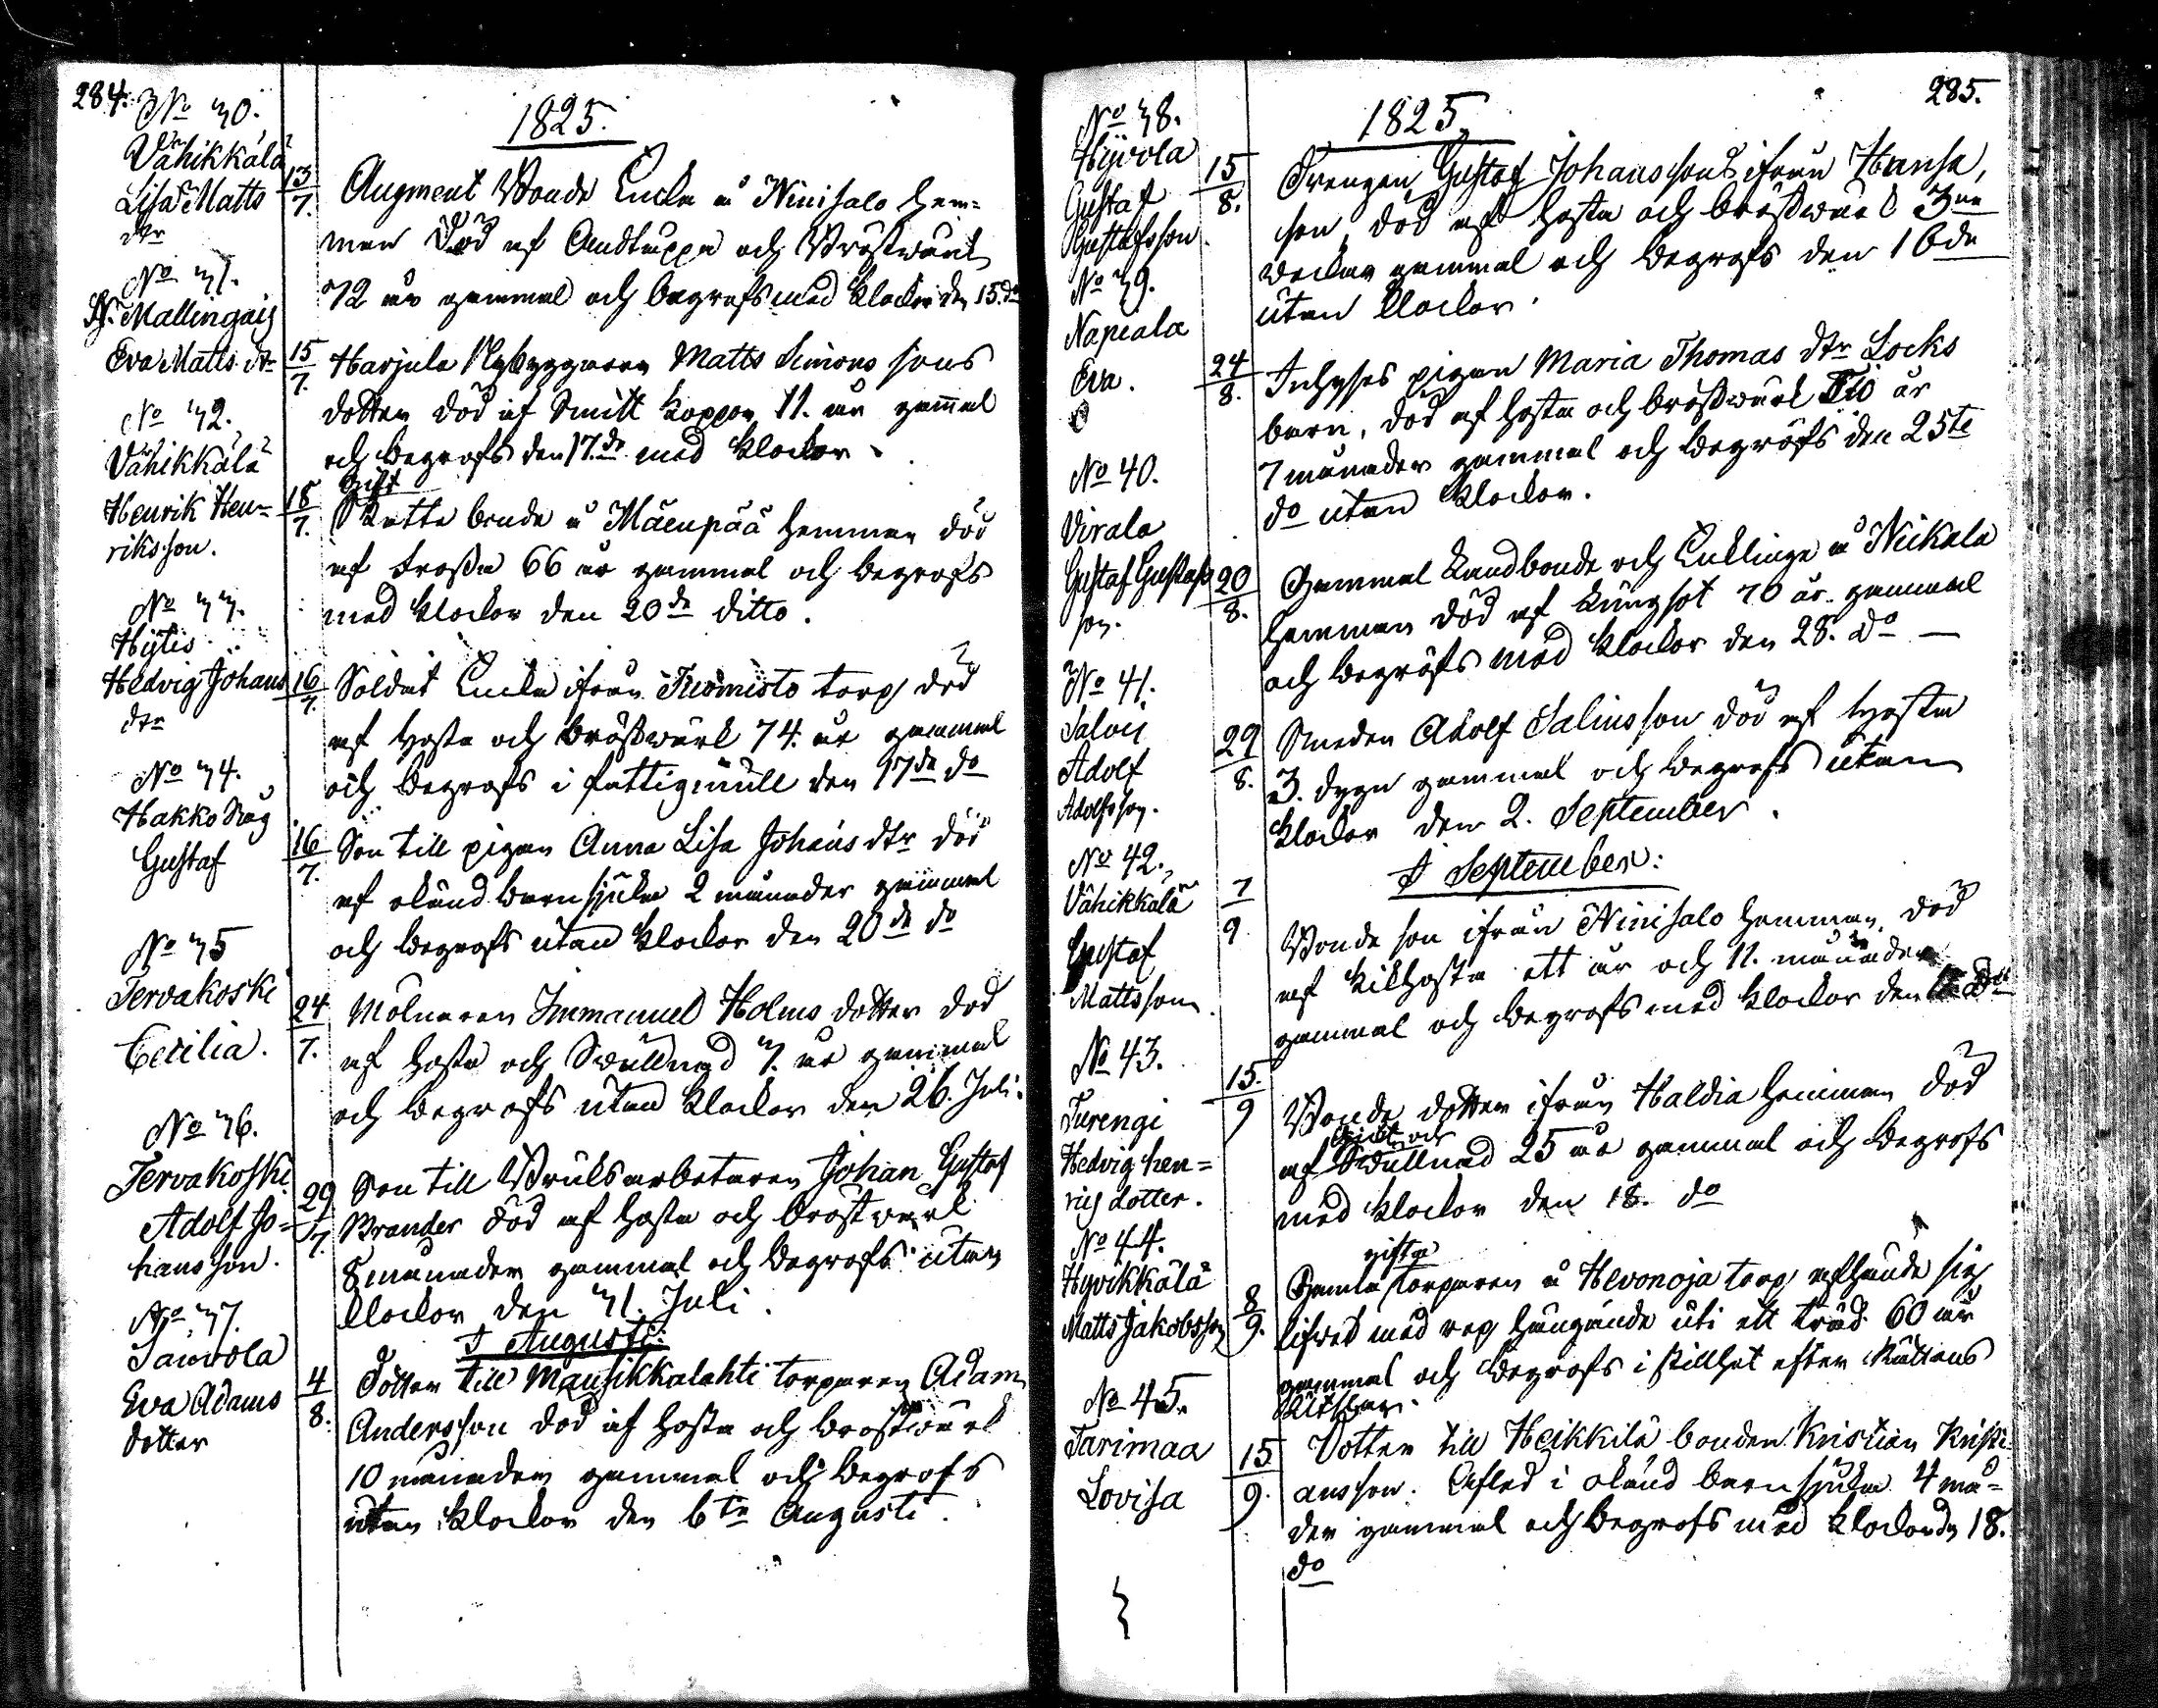 284.
No 30.
Vähikkälä
Lisa Matts
dtr
No 31.
Mallingais
Eva Matts dtr
No 32.
Vähikkälä
Henrik Hen=
riksson.
No 33.
Hijtis
Hedvig Johans
dtr
No 34.
Hakko Råg
Gustaf
No 35
Tervakoski
Cecilia.
No 36.
Tervakoski
Adolf Jo=
hansson.
No 37.
Sauvola
Eva Adams
dotter
1825.
13/7. Augment Bonde Enka å Ninisalo hem=
man död af Andtäppa och Bröstwärk
72 år gammal och begrofs med klockor den 15.de
15/7. Harjula Nybyggaren Matts Simons sons
dotter död af Smitt koppor 11. år gammal
och begrofs den 17.de med klockor
Gift
18/7. Rätte bonde å Mäenpää hemman död
af trossa 66 år gammal och begrofs
med klockor den 20de ditto.
16/7. Soldat Enka ifrån Tuomisto torp död
af hosta och bröstwärk 74. år gammal
och begrofs i fattigmull den 17de do
16/7. Son till pigan Anna Lisa Johans dtr död
af okänd barnsjuka 2 månader gammal
och begrofs utan klockor den 20de do
24/7. Mölnaren Immanuel Holms dotter död
af hosta och Swullnad 3. år gammal
och begrofs utan klockor den 26. Juli.
29/7. Son till Bruksarbetaren Johan Gustaf
Brander död af hosta och bröstwärk
8 månader gammal och begrofs utan
klockor den 31. Juli.
I Augusti:
4/8. Dotter till Mansikkalahti torparen Adam
Andersson död af hosta och bröstwärk
10 månader gammal och begrofs
utan klockor den 6te Augusti.
285.
No 38.
Hyvola
Gustaf
Gustafsson
No 39.
Napiala
Eva.
No 40.
Virala
Gustaf Gustafs
son.
No 41.
Saloij
Adolf
Adolfsson.
No 42.
Vähikkälä
Gustaf
Mattsson.
No 43.
Turengi
Hedvig hen=
rics dotter.
No 44.
Hyvikkälä
Matts Jakobsson
No 45.
Tarimaa
Lovisa
1825.
15/8. Drengen Gustaf Johanssons ifrån Hansa,
son, död af hosta och bröstwärk 3ne
weckor gammal och begrofs den 16de
utan klockor.
24/8. Inhyses pigan Maria Thomas dtr Locks
barn, död af hosta och bröstwärk Tio år
7 månader gammal och begrofs den 25te
do utan klockor.
20/8. Gammal Landbonde och Enklinge å Nickala
hemman död af Lungsot 70 år gammal
och begrofs med klockor den 28. do
29/8. Smeden Adolf Salinsson död af hosta
3. dygn gammal och begrofs utan
klockor den 2. September.
I September:
7/9 Bonde son ifrån Ninisalo hemman, död
af Kikhosta ett år och 11. månader
gammal och begrofs med klockor den
15./9 Bonde dotter ifrån Haldia hemman död
af Swullnad 25 år gammal och begrofs
med klockor den 18. do
gifta
8/9. Gamla torparen å Hevonoja torp afhände sig
lifwet med rep hängande uti ett träd. 60 år
gammal och begrofs i stillhet efter Rättens
Utslag.
15/9. Dotter till Heikkilä bonden Kristian Kristi=
ansson. Afled i okänd barnsjuka 4 må=
der gammal och begrofs med klockor den 18.
do